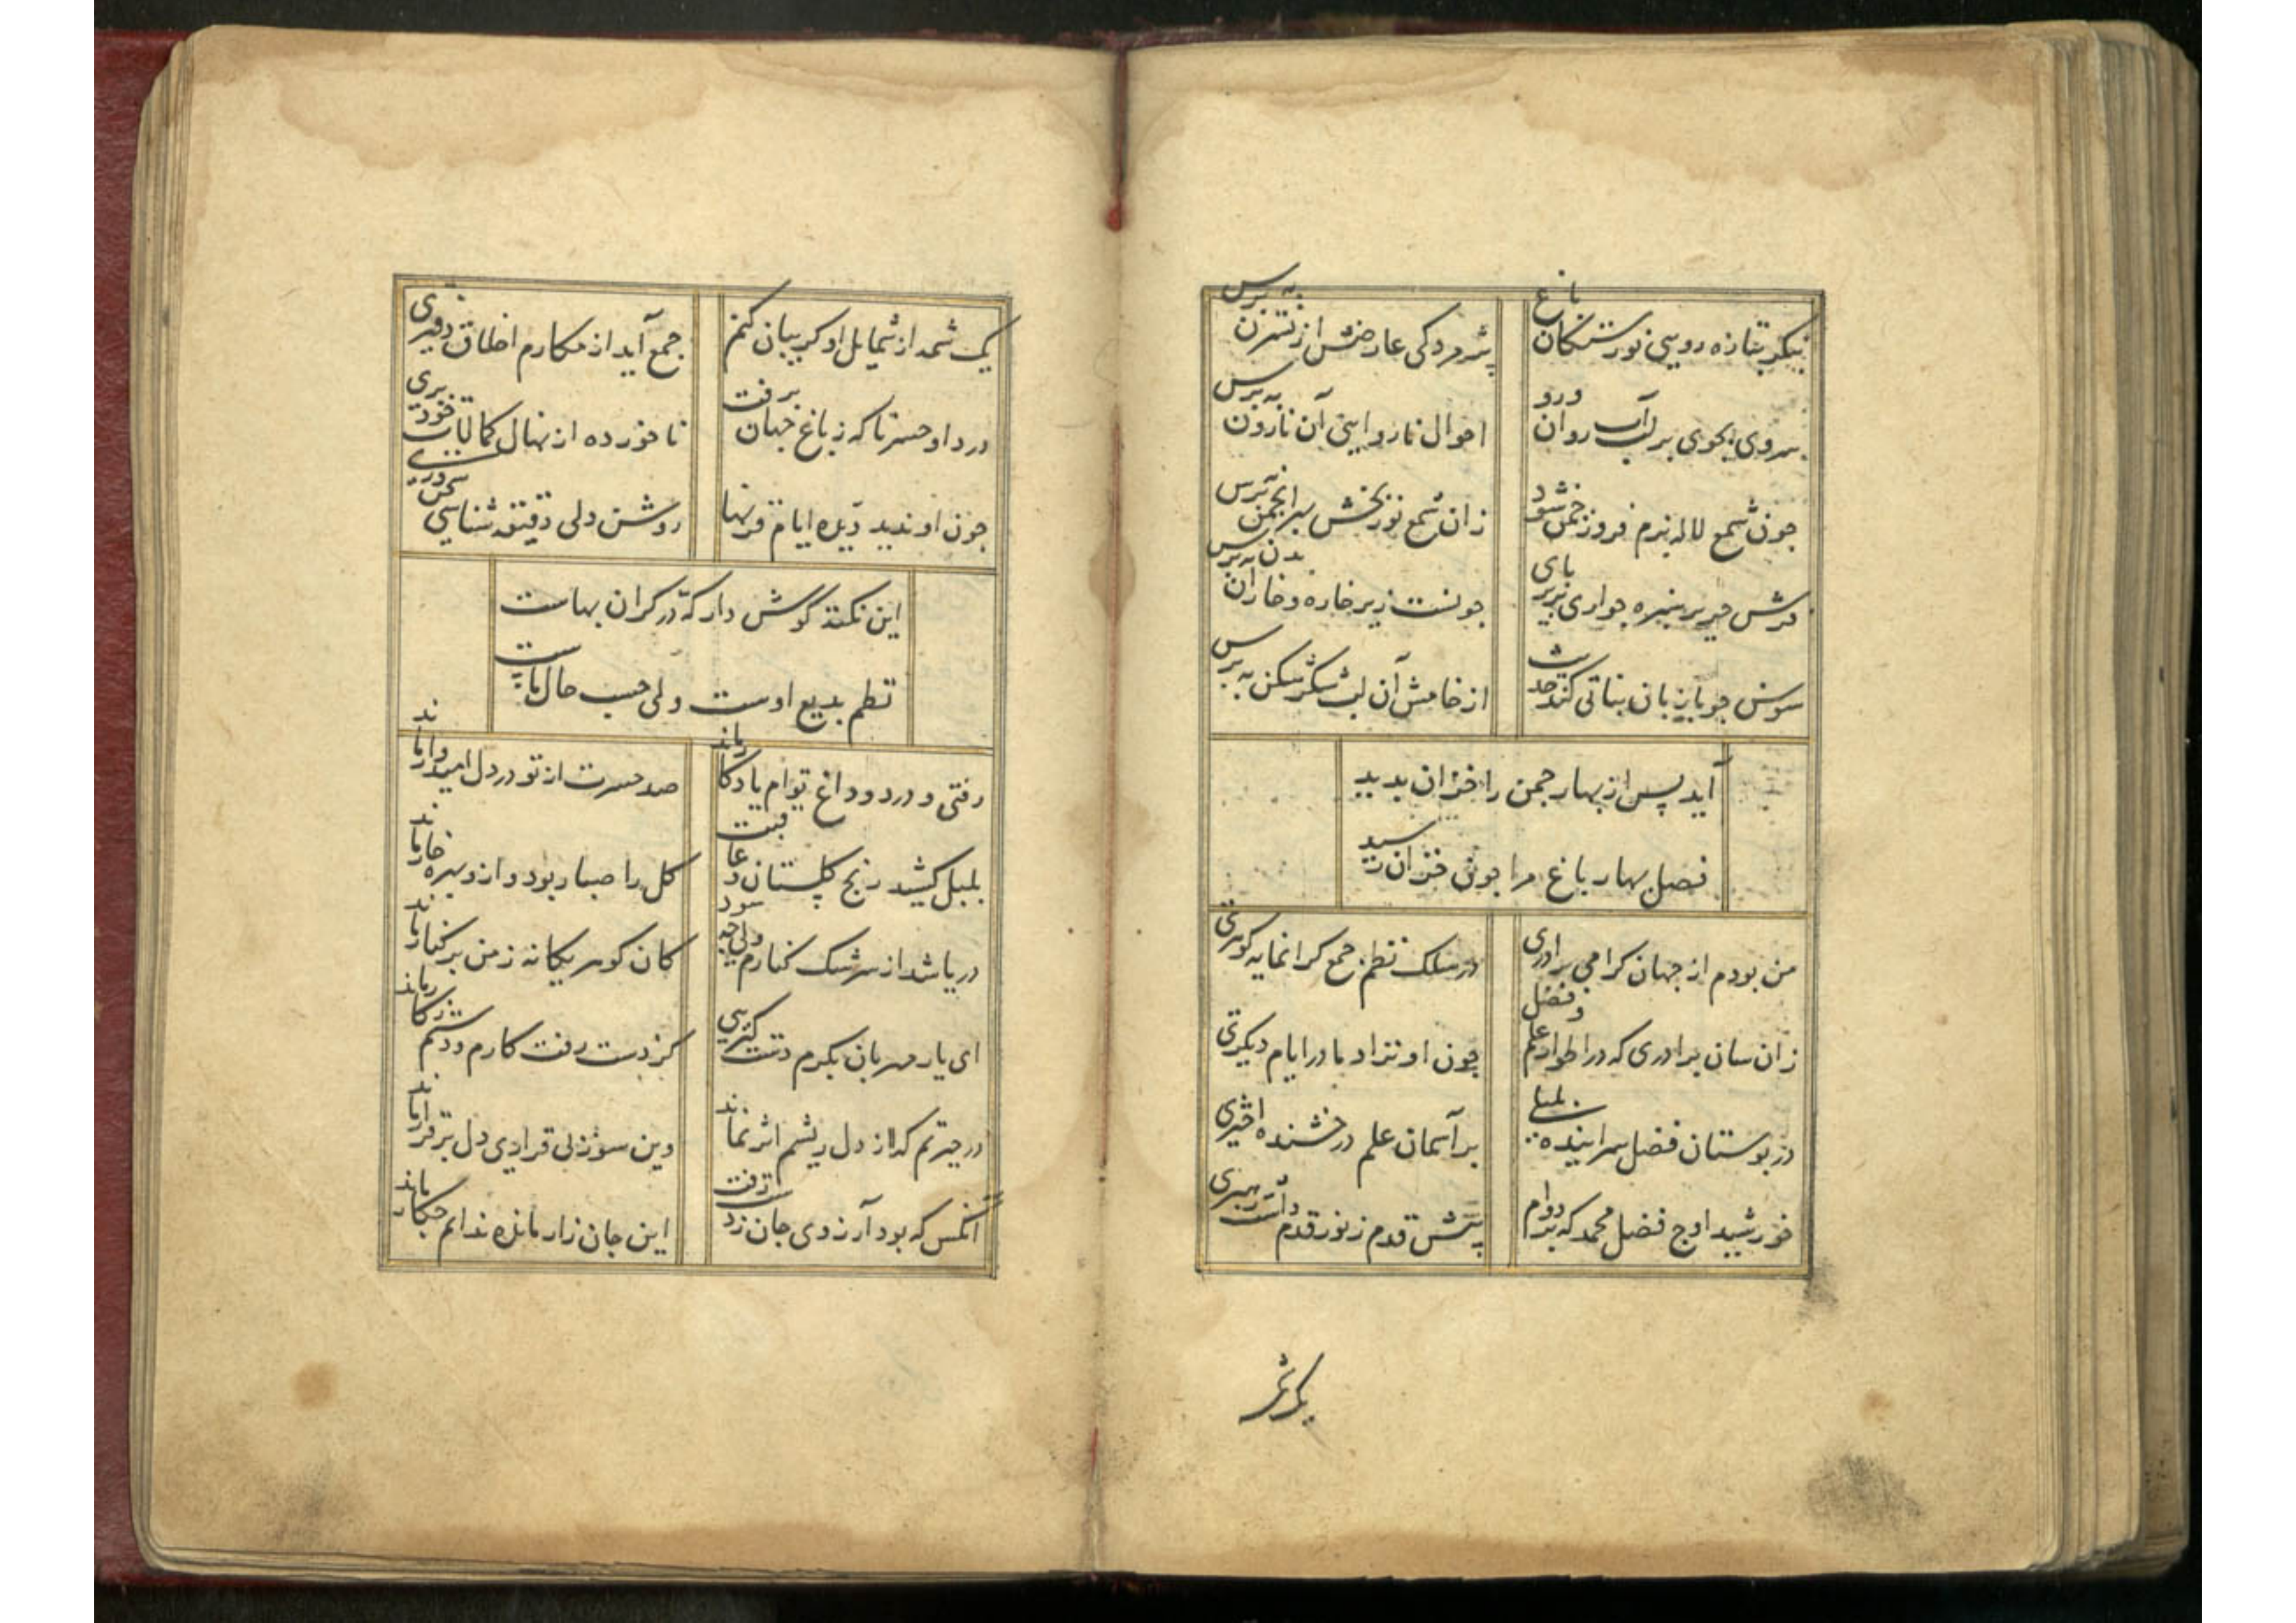 بنگر بتازه رویی نورستگان باغ
پژمردگی عارضش از نسترن بپرس
سروی بجوی بر لب آب روان ورو
احوال ناروایی آن نارون بپرس
چون شمع لاله بزم فروز چمن شود
زان شمع نوربخش سر انجمن بپرس
فرش حریر سبزه چو آری بزیر پای
چونست زیر خاره و خارا آن بدن بپرس
سوسن چو با زبان نباتی کند حدیث
از خامشی آن لب شکرشکن بپرس
آید پس از بهار چمن را خزان پدید
فصل بهار باغ مرا چون خزان رسید
من بودم از جهان و گرامی برادری
در سلک نظم جمع گرانمایه گوهری
زان سان برادری که در اطوار علم و فضل
چون او نزاد مادر ایام دیگری
در بوستان فضل سراینده بلبلی
بر آسمان علم درخشنده اختری
خورشید اوج فضل محمد که بر دوام
پیشش قدم ز نور قدم داشت رهبری
یک شمه
یک شمه از شمایل او گر بیان کنم
جمع آید از مکارم اخلاق دفتری
دردا و حسرتا که ز باغ جهان برفت
ناخورده از نهال کمالات خود بری
چون او ندید دیده ایام قرنها
روشن دلی دقیقه شناسی سخن وری
این نکته گوش دار که در گران بهاست
نظم بدیع اوست ولی حسب حال ماست
رفتی و درد و داغ توام یادگار ماند
صد حسرت از تو در دل امیدوار ماند
بلبل کشید رنج گلستان و عاقبت
گل را صبا ربود و ازو بهره خار ماند
دریا شد از سرشک کنارم ولی چه سود
کان گوهر یگانه ز من بر کنار ماند
ای یار مهربان بکرم دست گیریی
کز دست رفت کارم و دستم ز کار ماند
در حیرتم که از دل ریشم اثر نماند
وین سوز بی قراری دل برقرار ماند
آنکس که بود آرزوی جان ز دست رفت
این جان زار مانده ندانم چکار ماند